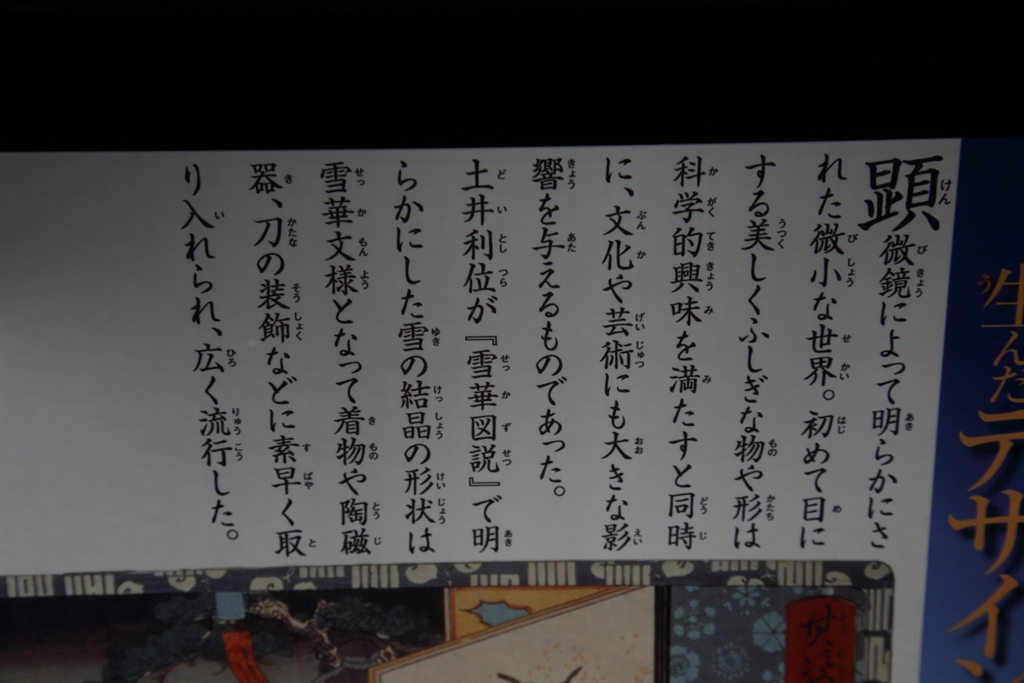 生んだデザイン
顕微鏡によって明らかにさ
れた微小な世界。初めて目に
する美しくふしぎな物や形は
科学的興味を満たすと同時
に、文化や芸術にも大きな影
響を与えるものであった。
土井利位が『雪華図説』で明
らかにした雪の結晶の形状は
雪華文様となって着物や陶磁
器、刀の装飾などに素早く取
り入れられ、広く流行した。